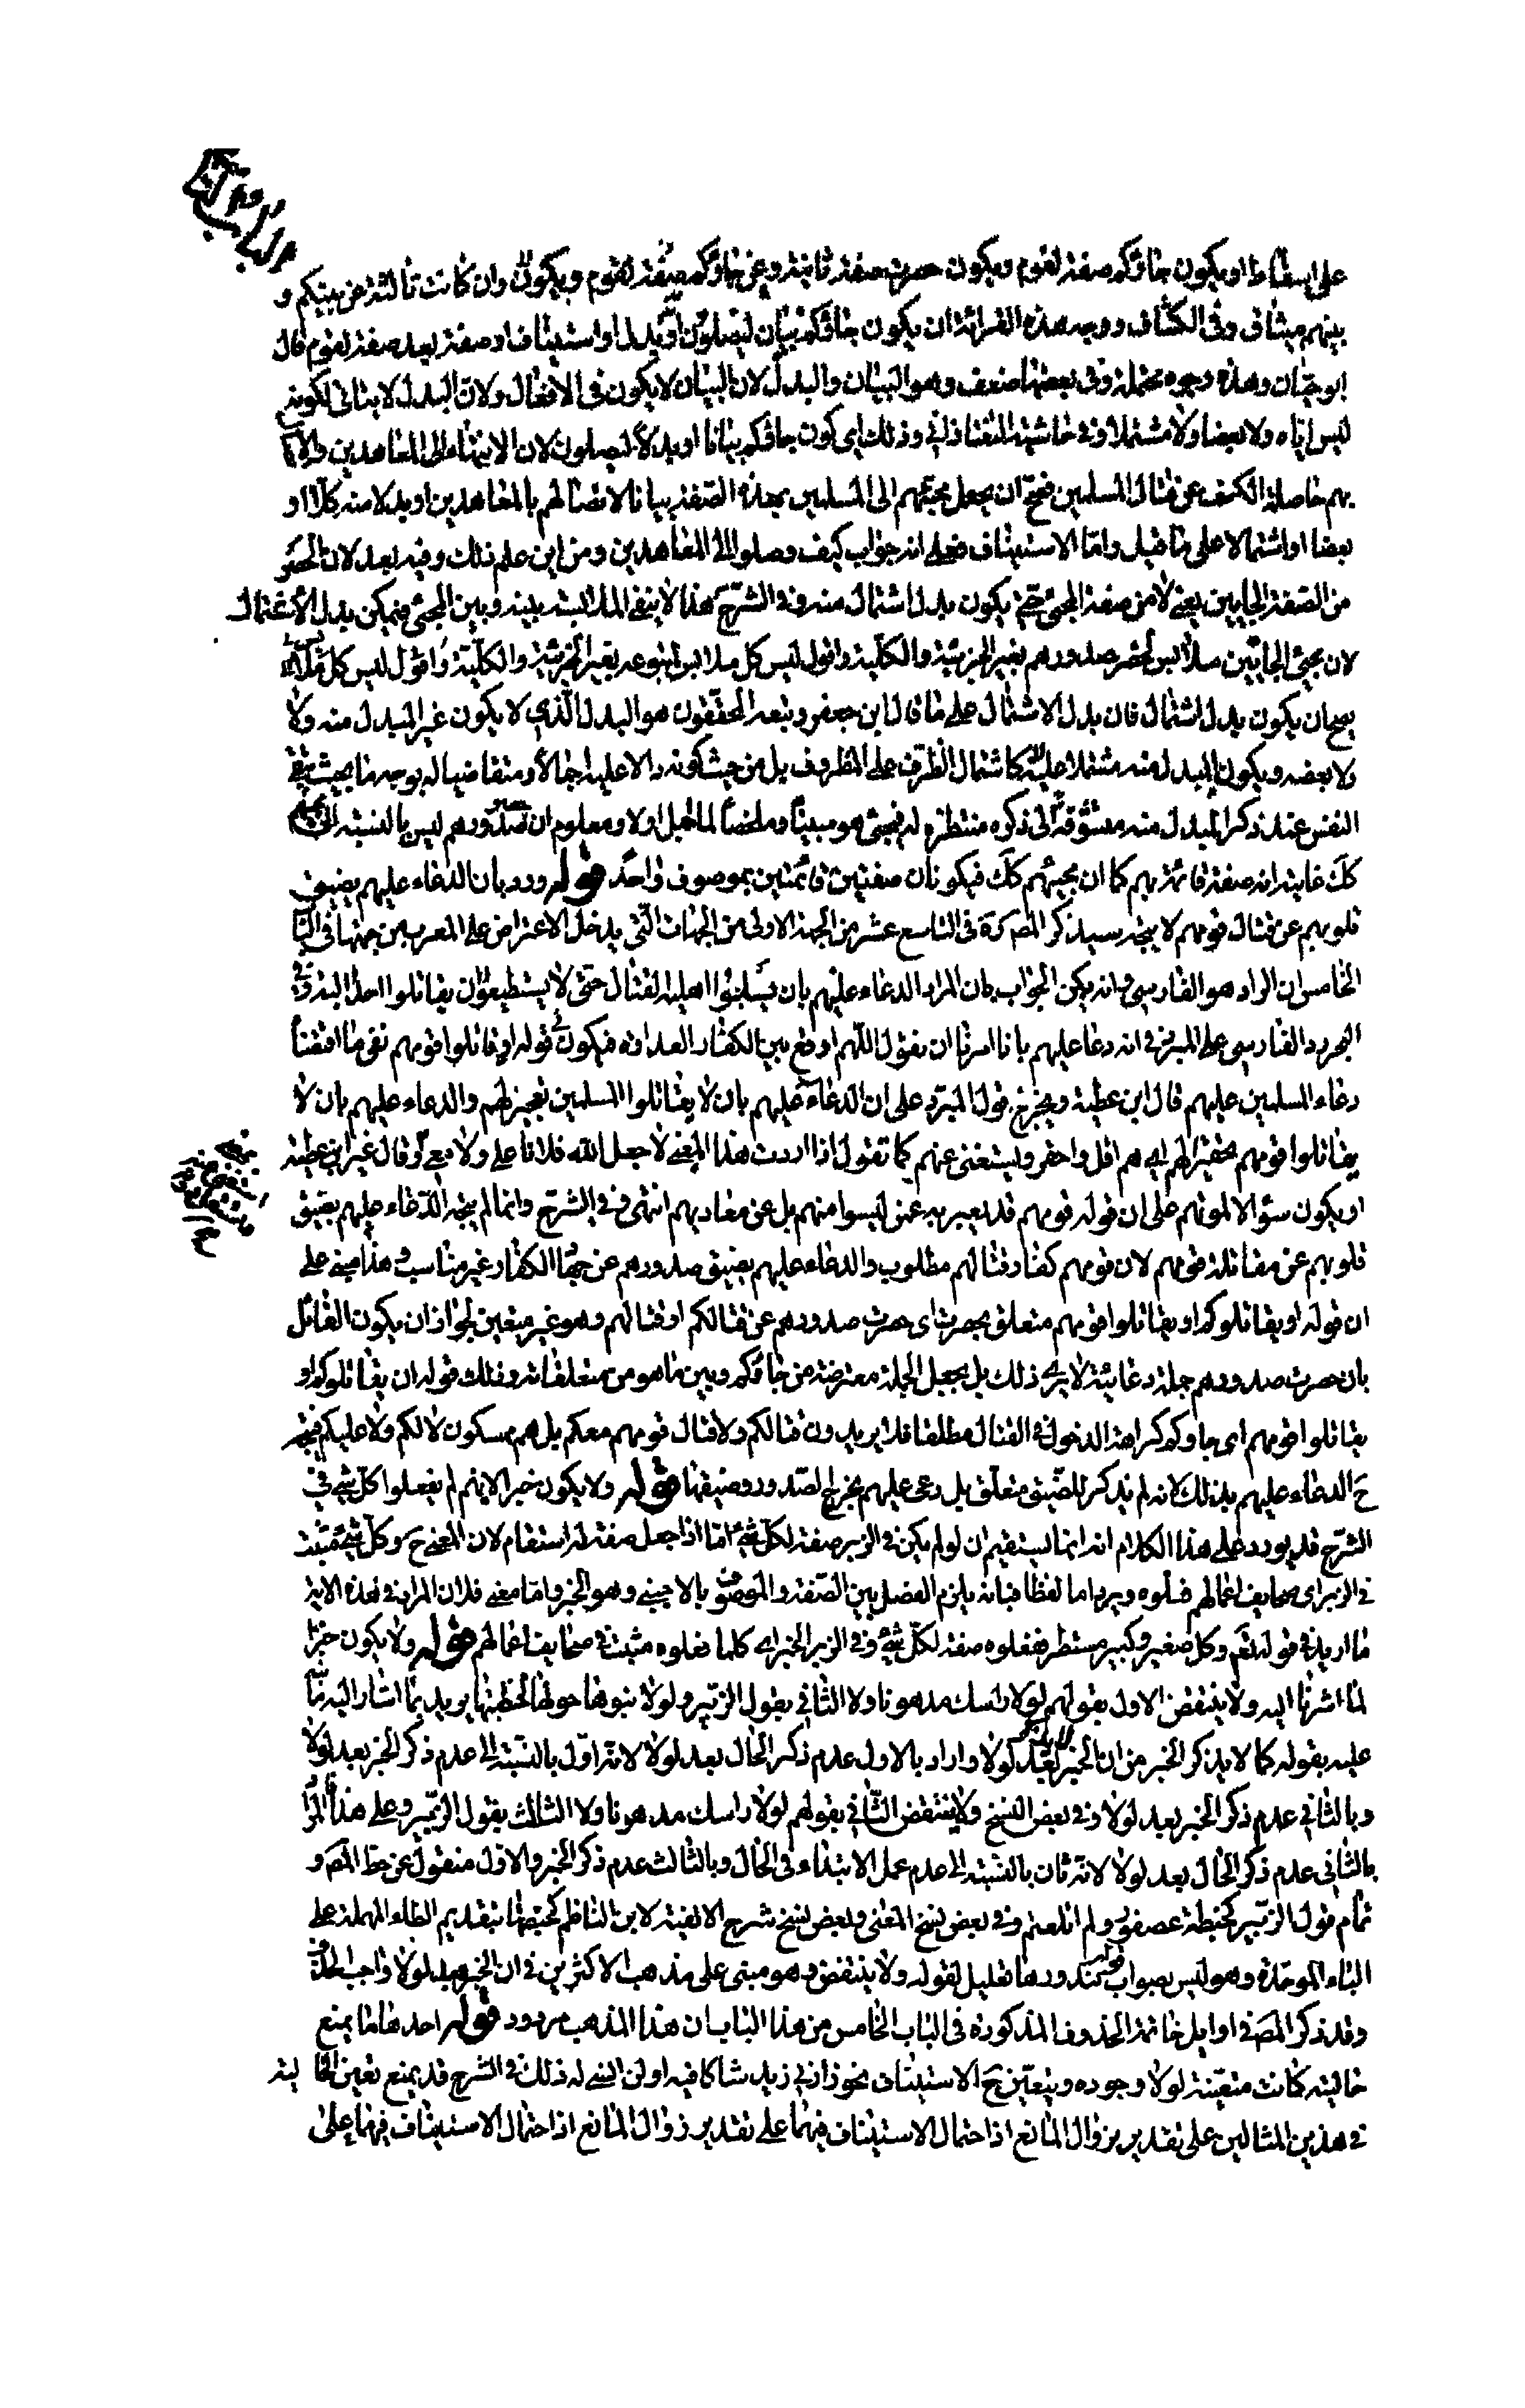 على اسقاط او ويكون جاؤكم صفة لقوم ويكون حصرت صفة ثانية وعن جاؤكم صفة لقوم ويكون وان كانت ثالثة عن بينكم و
بينهم ميثاق وفى الكشاف ووجه هذه القرائة ان يكون جاؤكم بيان ليصلون او بدلا او استيناف او صفة بعد صفة لقوم قال
ابو حيّان وهذه وجوه محتملة وفى بعضها ضعف وهو البيان والبدل لان البيان لا يكون فى الافعال ولان البدل لا يتاتى لكونه
ليس اياه ولا بعضا ولا مشتملا وفى حاشية التفتازانى وذلك اى كون جاؤكم بيانا او بدلا ليصلون لان الانتهاء الى المعاهدين والا
بهم حاصله الكف عن قتال المسلمين فصح ان يجعل مجيئهم الى المسلمين بهذه الصفة بيانا لاتصالهم بالمعاهدين او بدلا منه كلا او
بعضا او اشتمالا على ما قيل وامّا الاستيناف فعلى انه جواب كيف وصلوا الى المعاهدين ومن اين علم ذلك وفيه بعد لان الحصر
من الصفة الجايين يعنى لا من صفة المجئ حتى يكون بدل اشتمال منه وفى الشرح هذا لا ينفى الملابسة بينه وبين المجئ فيمكن بدل الاشتمال
لان مجئ الجايين ملابس لحصر صدورهم بغير الجزئية والكلية واقول ليس كل ملابس لمتبوعه بغير الجزئية والكلية واقول ليس كل
يصح ان يكون بدل اشتمال فان بدل الاشتمال على ما قال ابن جعفر وتبعه المحققون هو البدل الذى لا يكون غير المبدل منه ولا
ولا بعضه ويكون المبدل منه مشتملا عليه لا كاشتمال الظرف على المظروف بل من حيث كونه دالا عليه اجمالا ومتقاضيا له بوجه ما بحيث تبقى
النفس عند ذكر المبدل منه متشوقة الى ذكره منتظرة له فيجئ هو مبينا وملخصا لما اجمل اولا ومعلوم ان صدورهم ليس بالنسبة الى مجيئهم
كك غايته انه صفة قائمة بهم كما ان مجيئهم كك فيكونان صفتين قائمتين بموصوف واحد قوله ورد بان الدعاء عليهم بضيق
قلوبهم عن قتال قومهم لا يتجه سيذكر المص ره فى التاسع عشر من الجهة الاولى من الجهات التى يدخل الاعتراض على المعرب من جهتها فى البا
الخامس ان الراد هو الفارسى وانه يمكن الجواب بان المراد الدعاء عليهم بان يسلبوا اهلية القتال حتى لا يستطيعوا ان يقاتلوا احدا البتة وفى
البحر رد الفارسى على المبرد فى انه دعا عليهم بانا امرنا ان نقول اللهم اوقع بين الكفار العداوة فيكون فى قوله او يقاتلوا قومهم نفى ما اقتضا
دعاء المسلمين عليهم قال ابن عطية ويخرج قول المبرد على ان الدعاء عليهم بان لا يقاتلوا المسلمين تعجيز لهم والدعاء عليهم بان لا
يقاتلوا قومهم تحقير لهم اى هم اقل واحقر ويستغنى عنهم كما تقول اذا اردت هذا المعنى لا جعل الله فلانا على ولا معى وقال غير ابن عطية
او يكون سؤالا لموتهم على ان قوله قومهم قد يعبر به عمن ليسوا منهم بل عن معاديهم انتهى وفى الشرح وانما لم يتجه الدعاء عليهم بضيق
قلوبهم عن مقاتلة قومهم لان قومهم كفار وقتالهم مطلوب والدعاء عليهم بضيق صدورهم عن جهة الكفار غير مناسب وهذا مبنى على
ان قوله او يقاتلوكم او يقاتلوا قومهم متعلق بحصرت اى حصرت صدورهم عن قتالكم او قتالهم وهو غير متعين لجواز ان يكون القائل
بان حصرت صدورهم جملة دعائية لا يرى ذلك بل يجعل الجملة معترضة من جاؤكم وبين ما هو من متعلقاته وذلك قوله ان يقاتلوكم او
يقاتلوا قومهم اى جاوكم كراهة الدخول فى القتال مطلقا فلا يريدون قتالكم ولا قتال قومهم معكم بل هم مسكون لا لكم ولا عليكم فيتجه
ح الدعاء عليهم بذلك لانه لم يذكر للضيق متعلق بل دعى عليهم بحرج الصدور وضيقها قوله ولا يكون خبرا لانهم لم يفعلوا كل شئ فى
الشرح قد يورد على هذا الكلام انه انما يستقيم ان لو لم يكن فى الزبر صفة لكل شئ امّا اذا جعل صفة له استقام لان المعنى ح وكل شئ مثبت
فى الزبر اى صحايف اعمالهم فعلوه ويرد اما لفظا فبانه يلزم الفصل بين الصفة والموصوف بالاجنبى وهو الخبر وامّا معنى فلان المراد فى هذه الاية
ما اريد فى قوله تعم وكل صغير وكبير مستطر ففعلوه صفة لكل شئ وفى الزبر الخبر اى كلما فعلوه مثبت فى صحايف اعمالهم قوله ولا يكون خبرا
لما اشرنا اليه ولا ينتقض الاول بقولهم لولا راسك مدهونا ولا الثانى بقول الزبير ولولا بنوها حولها لخطبتها يريد بما اشار اليه
عليه بقوله كما لا يذكر الخبر من ان الخبر بعد لولا واراد بالاول عدم ذكر الحال بعد لولا لانه اوّل بالنسبة الى عدم ذكر الخبر بعد لولا
وبالثانى عدم ذكر الخبر بعد لولا وفى بعض النسخ ولا ينتقض الثانى بقولهم لولا راسك مدهونا ولا الثالث بقول الزبير وعلى هذا المراد
بالثانى عدم ذكر الحال بعد لولا لانه ثان بالنسبة الى عدم عمل الابتداء فى الحال وبالثالث عدم ذكر الخبر والاول منقول عن خط المص و
تمام قول الزبير كخبطة عصفور ولم اتلعثم وفى بعض نسخ المغنى وبعض نسخ شرح الالفية لابن الناظم لخبطتها بتقديم الطاء المهملة على
الباء الموحدة وهو ليس بصواب قوله لندورها تعليل لقوله ولا ينتقض وهو مبنى على مذهب الاكثرين فى ان الخبر بعد لولا واجب الحذف
وقد ذكر المص فى اوايل خاتمة الحذوف المذكورة فى الباب الخامس من هذا الباب ان هذا المذهب مردود قوله احدها ما يمنع
حاليته كانت متعينة لولا وجوده ويتعين ح الاستيناف نحو زارنى زيد ساكافيه او لن انسى له ذلك فى الشرح قد يمنع تعين الحا لية
فى هذين المثالين على تقدير زوال المانع اذ احتمال الاستيناف فيهما على تقدير زوال المانع اذ احتمال الاستيناف فيهما على